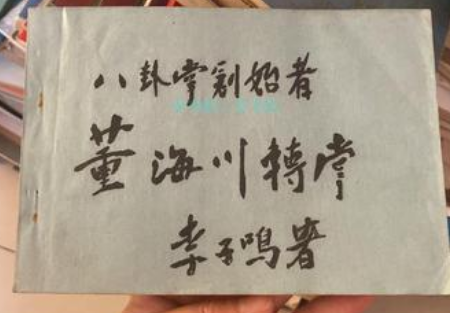 八卦掌创始者
董海川轉掌
李子鳴署